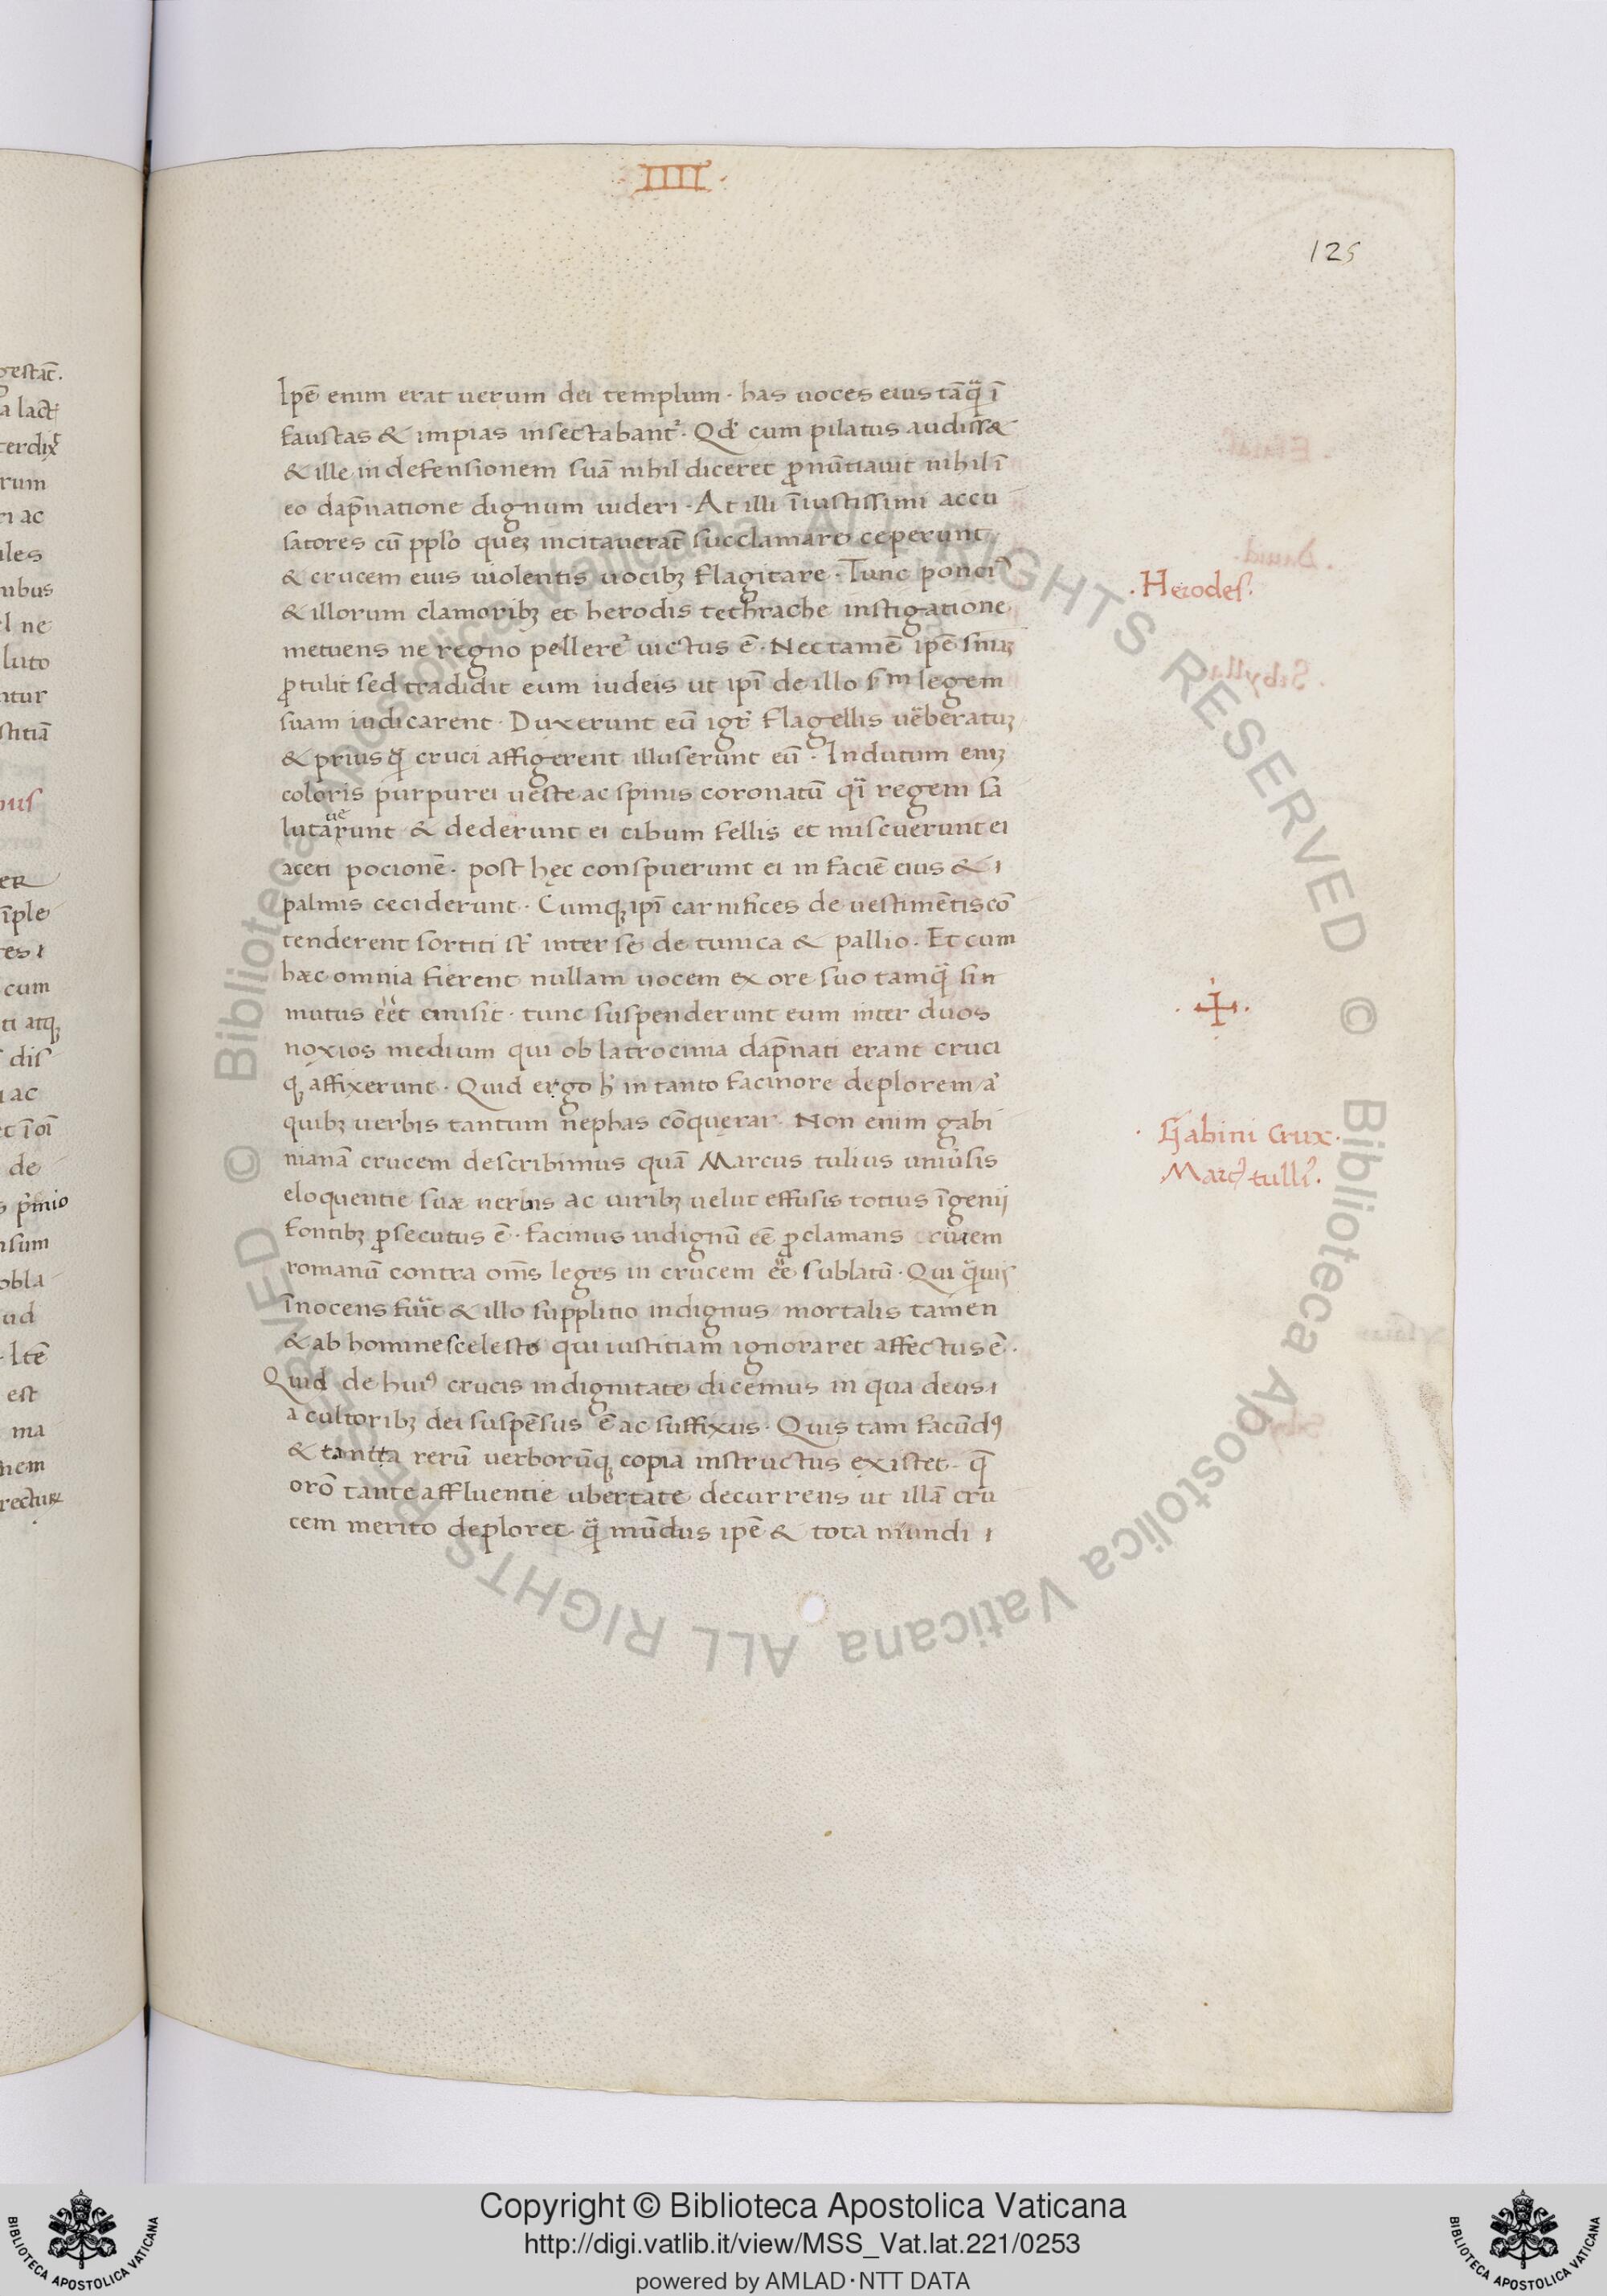 ·IIII·
125
Ipē enim erat uerum dei templum · has uoces eius tāq̈ ī
faustas & impias insectabant᷑ · Qđ cum pilatus audiss&
& ille in defensionem suā nihil diceret ꝓnūtiauit nihil ī
eo dap̄natione dignum uideri · At illi īiustissimi accu
satores cū pplo quēꝫ incitauerāt succlamare ceperunt
& crucem eius uiolentis uocibꝫ flagitare · Tunc ponciꝰ
& illorum clamoribꝫ et herodis tethrache instigatione
metuens ne regno pellere᷑ uictus ē · Nec tamē ipē sniaꝫ
ꝓtulit sed tradidit eum iudeis ut ipī de illo sᵐ legem
suam iudicarent · Duxerunt eū igt᷑ flagellis ueberatuꝫ
& priusq̈ cruci affigerent illuserunt eū · Indutum eniꝫ
coloris purpurei ueste ac spinis coronatū qī regem sa
lutarunt & dederunt ei cibum fellis et miscuerunt ei
aceti pocionē · post hęc conspuerunt ei in faciē eius &
palmis ceciderunt · Cumqꝫ ipī carnifices de uestimētis cō
tenderent sortiti st̄ inter se de tunica & pallio · Et cum
hæc omnia fierent nullam uocem ex ore suo tamq̈ si n
mutus eēt emisit · tunc suspenderunt eum inter duos
noxios medium qui ob latrocinia dap̄nati erant cruci
qꝫ affixerunt · Quid ergo h̓ in tanto facinore deplorem / a᷑
quibꝫ uerbis tantum nephas cōquerar · Non enim gabi
nianā crucem describimus quā Marcus tulius uniu̓sis
eloquentie suæ neruis ac uiribꝫ uelut effusis totius īgenij
fontibꝫ ꝓsecutus ē · facinus indignū eē ꝓclamans ciuem
romanū contra om̄s leges in crucem eē sublatū · Qui q̈uis
īnocens fuit & illo supplitio indignus mortalis tamen
& ab homine scelesto qui iustitiam ignoraret affectus ē ·
Quid de huiꝰ crucis indignitate dicemus in qua deus
a cultoribꝫ dei suspēsus ē ac suffixus · Quis tam facūdꝰ
& tanta rerū uerborūqꝫ copia instructus existet · q̄
orō tante affluentie ubertate decurrens ut illā cru
cem merito deploret · q̈ mūdus ipē & tota mundi
· Herodes ·
· Gabini Crux ·
Marcꝰ tulliꝰ ·
Copyright © Biblioteca Apostolica Vaticana
http://digi.vatlib.it/view/MSS_Vat.lat.221/0253
powered by AMLAD·NTT DATA
BIBLIOTECA APOSTOLICA VATICANA
BIBLIOTECA APOSTOLICA VATICANA
© Biblioteca Apostolica Vaticana ALL RIGHTS RESERVED © Biblioteca Apostolica Vaticana ALL RIGHTS RESERVED